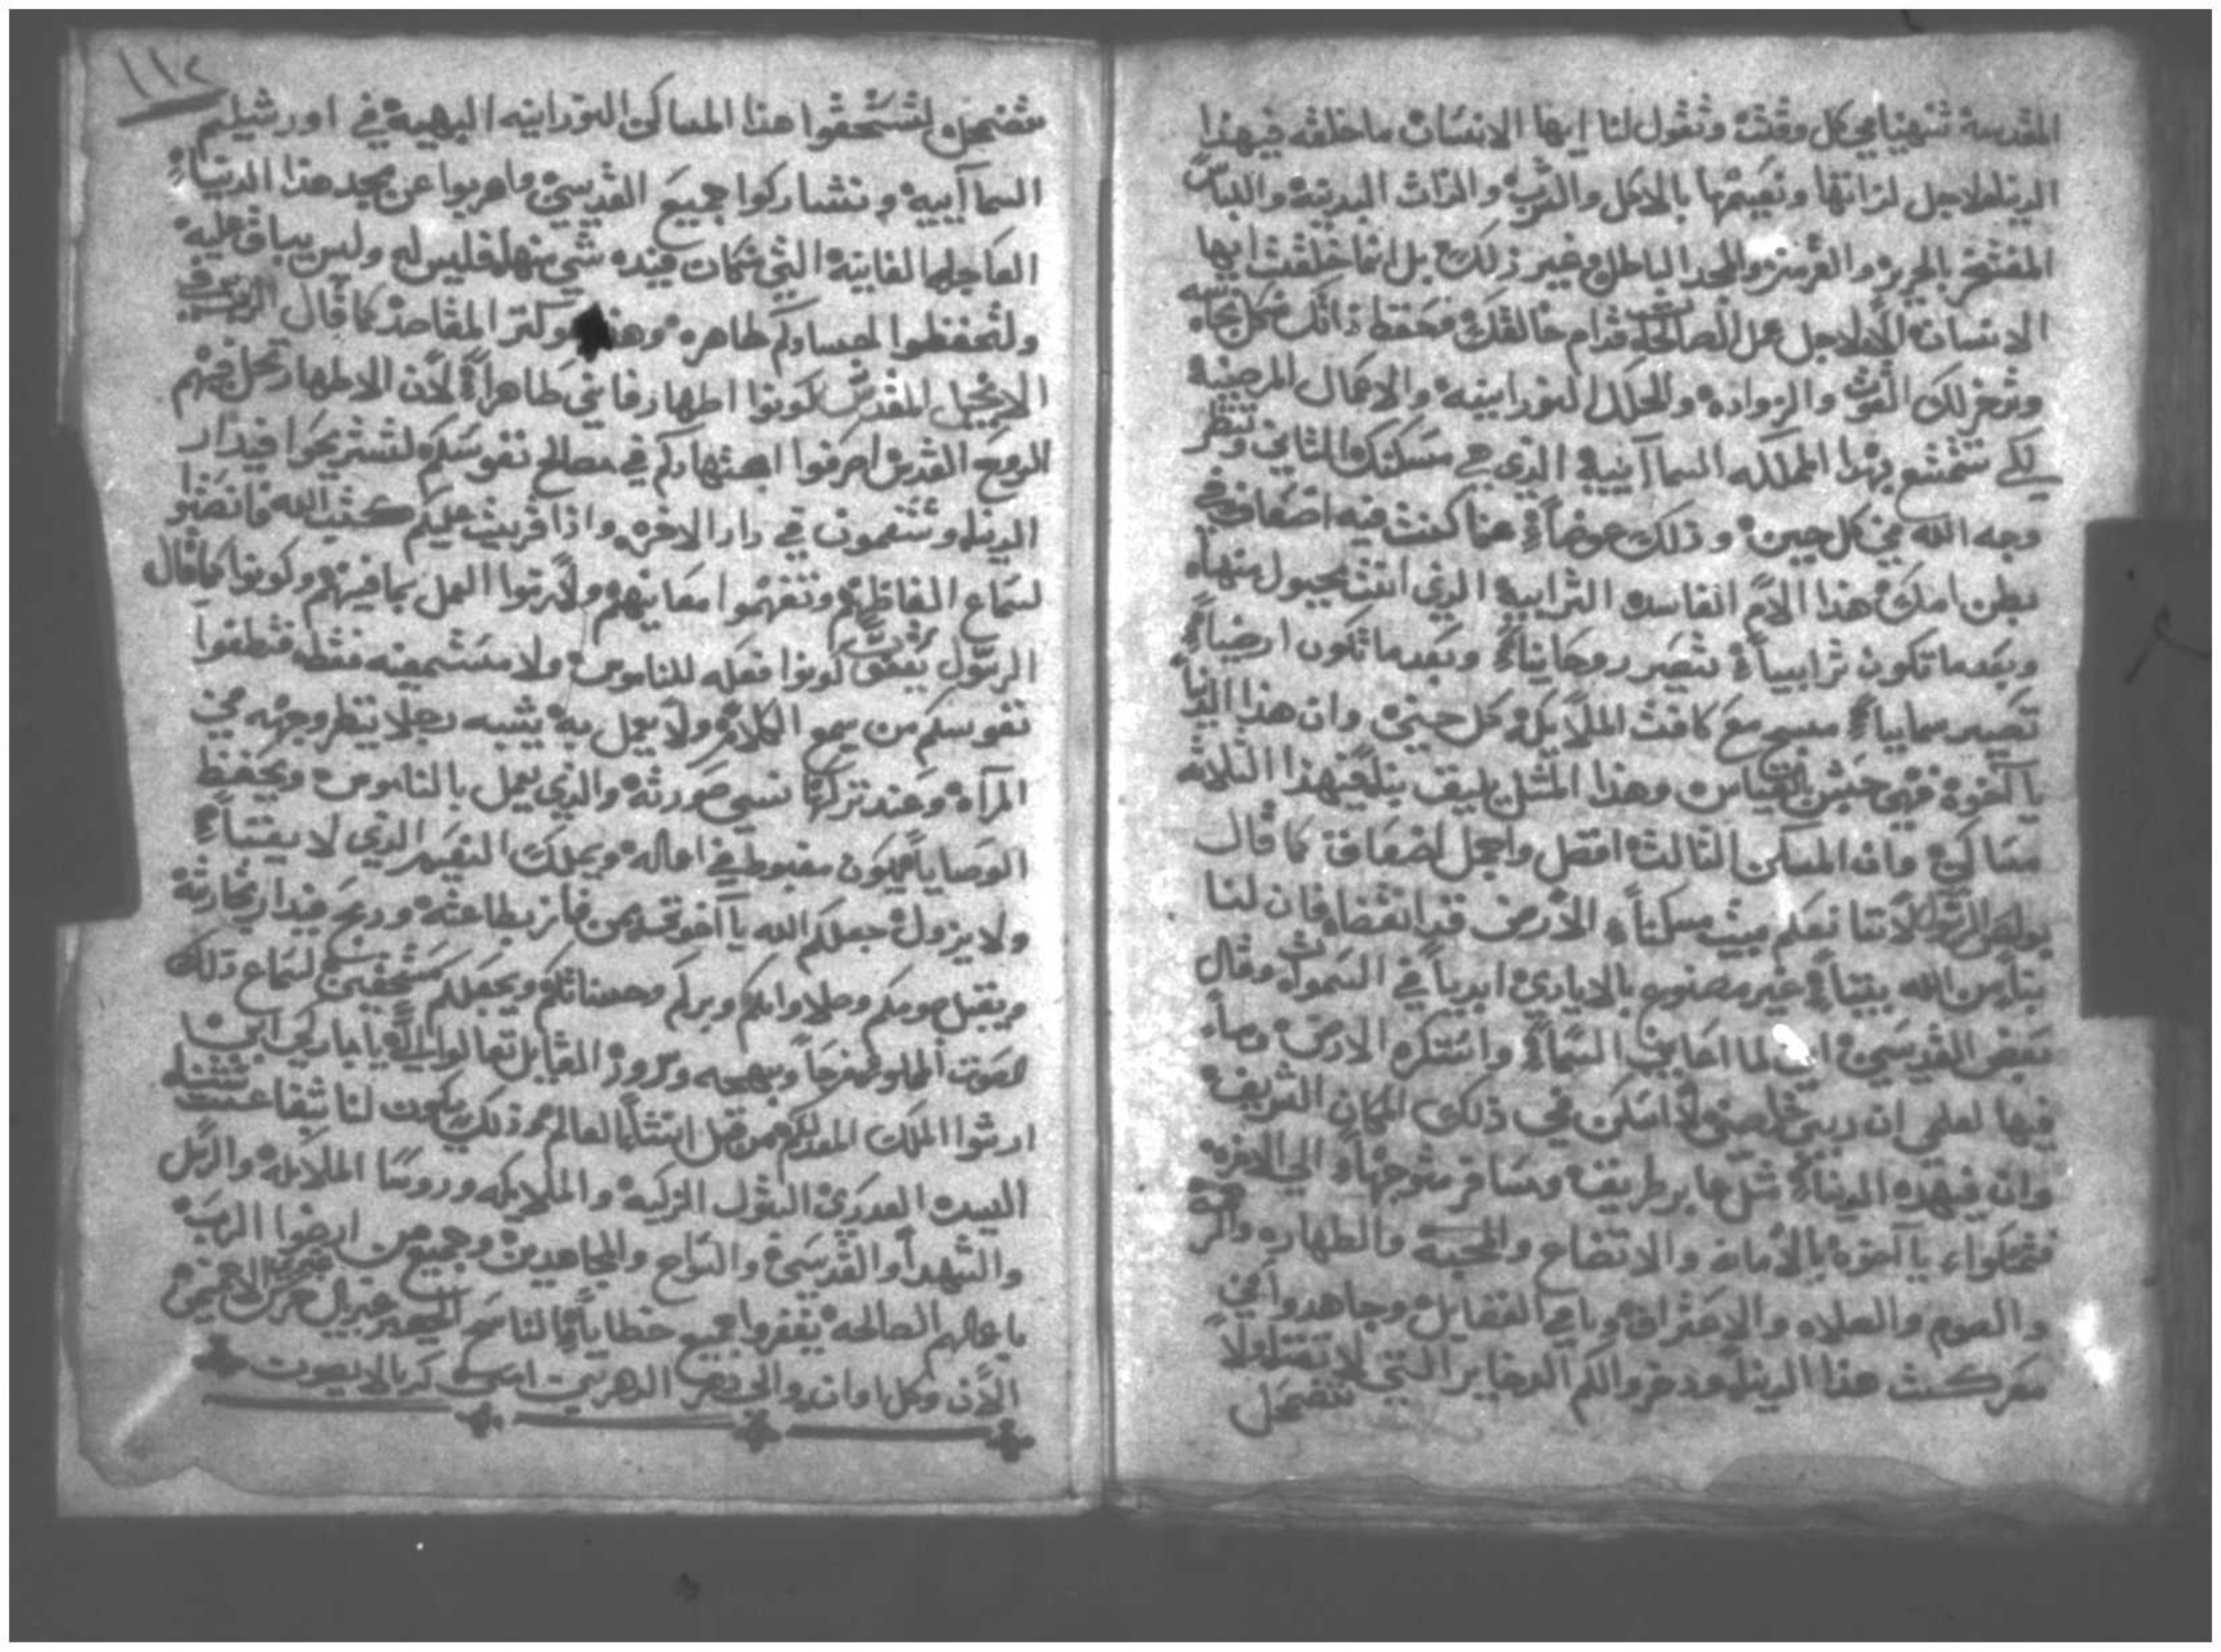 المقدسة تنهينا في كل وقت وتقول لنا ايها الانسان ما خلقه فيهذا
الدنيا لاجل لزاتها ونعيمها بالاكل والشرب والذات البدنية واللباس
المفتخر بالحرير والقرمز والمجد الباطل وغير ذلك بل انما خلقت ايها
الانسان لاجل عمل الصالحات قدام خالقك فحفظ ذاتك من كل نجاسه
وتدخر لك القوت والزوادة والحلل النورانية والاعمال المرضية
لكي تتمتع بهذا المملكه السماآيية الذي هي مسكنك الثاني وتنظر
وجه الله في كل حين وذلك عوضاً عما كنت فيه اضعاف في
بطن امك هذا الام الفاسده الترابية الذي انت مجبول منها
وبعد ما تكون ترابيياً تتصير روحانياً وبعد ما تكون ارضياً
تصير سمايياً مسبح مع كافت الملايكة كل حين وان هذا الدنيا
يا آخوة فهي حبس بالقياس وهذا المثل يليق بنا فيهذا الثلاثه
مساكن وان المسكن الثالث افضل واجمل اضعاف كما قال
بولص الرسول لاننا نعلم بيت مسكننا الارض قد انقضا فان لنا
بنا من الله بيتاً غير مصنوع بالايادي ابدياً في السموات وقال
بعض القديسين اني لما اعاين السما واستنكره الارض وما
فيها لعلمي ان ربي خلصني لاسكن في ذلك المكان الشريف
وان فيهذه الدنيا مثل عابر طريق ومسافر متوجهاً الي الاخره
فتحلوا يا آخوة بالأمانه والاتضاع والمحبه والطهاره والرحمة
والصوم والصلاه والاعتراف وباقي الفضايل وجاهدوا في
معركت هذا الدنيا ودخروا لكم الدخاير التي لا تفنا ولا
تتضمحل
١١٢
تتضمحل لتستحقوا هذا المساكن النورانيه البهية في اورشيليم
السماآيية وتشاركوا جميع القديسين واهربوا عن مجد هذا الدنيا
العاجله الفانية التي من كان عنده شي منها فليس له وليس يباق عليه
ولتحفظوا اجسادكم طاهره وهذا هو كنز المقاصد كما قال الرب في
الانجيل المقدس كونوا اطهار فاني طاهراً لأن الاطهار تحل فيهم
الروح القدس اصرفوا اجتهادكم في مصالح نفوسكم لتستريحوا في دار
الدنيا وتتنعمون في دار الاخره واذا قريت عليكم كتب الله فانصتوا
لسماع الفاظهم وتفهموا معانيهم ولازموا العمل بما فيهم وكونوا كما قال
الرسول يعقوب كونوا فعله للناموس ولا مستمعينه فقط فتطغوا
نفوسكم من يسمع الكلام ولا يعمل به يشبه رجلا ينظر وجهه في
المرآه وعند تركها نسي صورته والذي يعمل بالناموس ويحفظ
الوصايا فيكون مغبوط في اعماله ويملك النعيم الذي لا يفنا
ولا يزول جعلكم الله يا آخوتي من فاز بطاعته وربح في دار تجارته
ويقبل صومكم وصلاواتكم وبركم وحسناتكم ويجعلكم مستحقين لسماع ذلك
الصوت المملو فرحاً وبهجه وكروز القايل تعالوا الي يا مباركي ابي
ارثوا الملك المعد لكم من قبل انشا العالم ذلك يكون لنا بشفاعت ستنا
السيده العدري البتول الزكية والملايكه وروسا الملايكة والرسل
والشهدا والقديسين والسواح والمجاهدين وجميع من ارضوا الرب
باعمالهم الصالحه يغفروا جميع خطايا
الآن وكل اوان والي دهر الدهرين امين كرياليصون